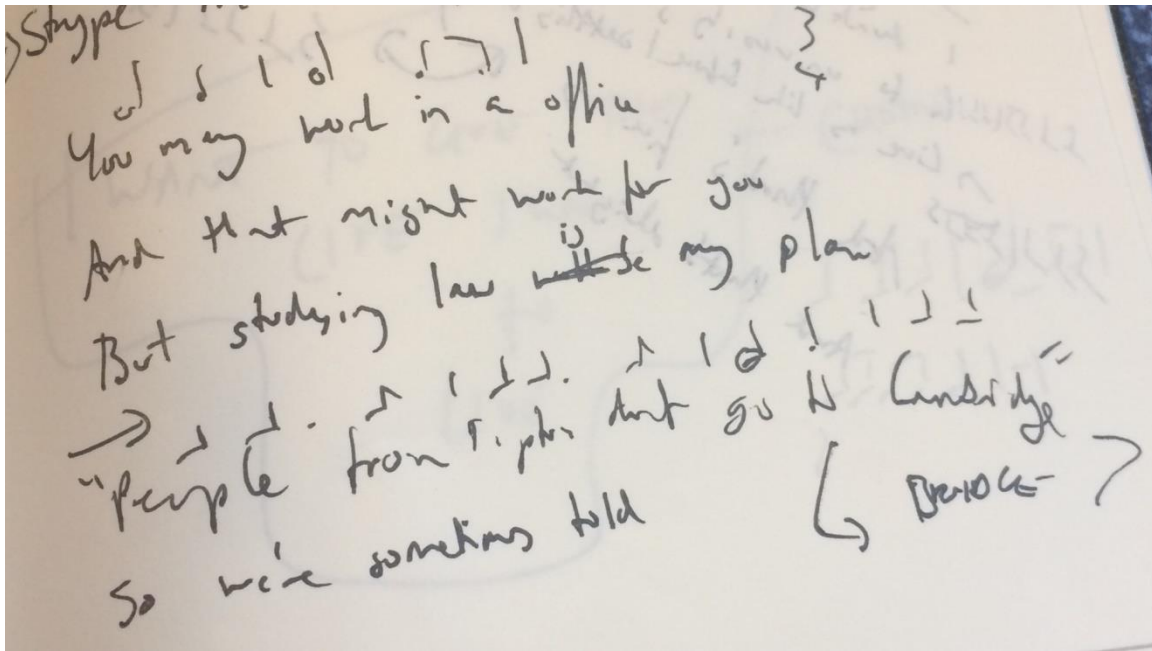 Skype
3
4
You may work in a office
And that might work for you
But studying law is my plan
"People from Tipton dont go to Cambridge"
BRIDGE
So we're sometimes told